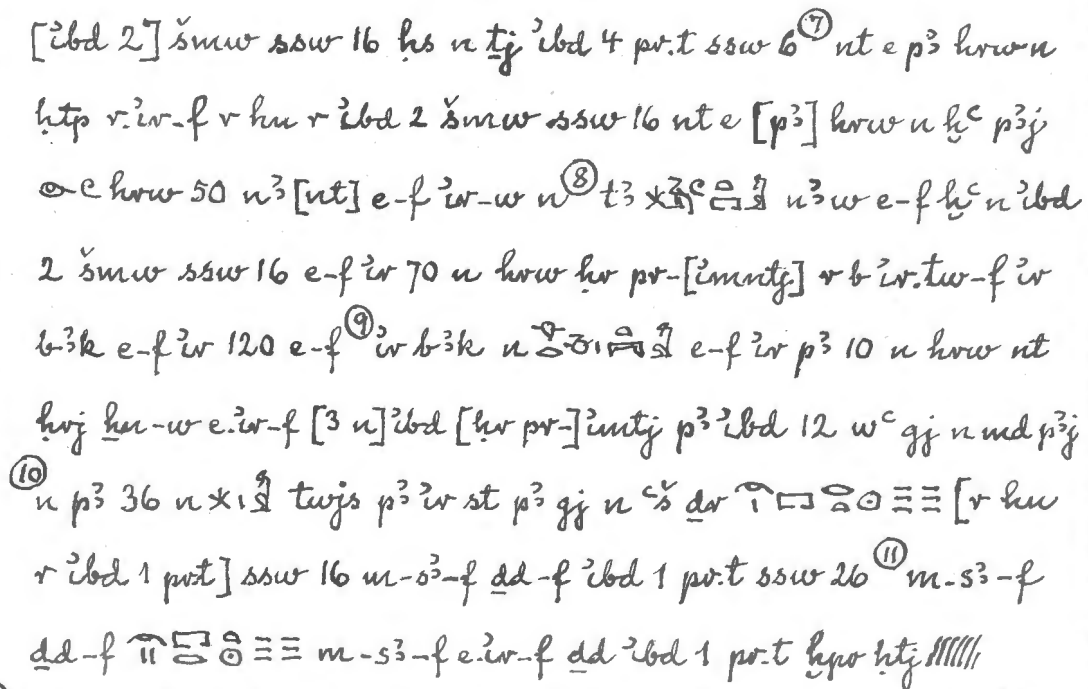 [ꜣibd 2] šmw ssw 16 ḥs n tj ꜣibd 4 pr.t ssw 6 ⑦ nt e pꜣ hrw n
ḥtp r.ꜣir-f r hn r ꜣibd 2 šmw ssw 16 nt e [pꜣ] hrw n ḫꜥ pꜣj
hrw 50 nꜣ [nt] e-f ꜣir-w n ⑧ tꜣ nꜣw e-f ḫꜥ n ꜣibd
2 šmw ssw 16 e-f ꜣir 70 n hrw ḥr pr-[ꜣimntj] r b ꜣir.tw-f ꜣir
bꜣk e-f ꜣir 120 e-f ⑨ ꜣir bꜣk n e-f ꜣir pꜣ 10 n hrw nt
ḥrj ẖn-w e.ꜣir-f [3 n] ꜣibd [ḥr pr-]ꜣimtj pꜣ ꜣibd 12 wꜥ gj n md pꜣj
⑩ n pꜣ 36 n twjs pꜣ ꜣir st pꜣ gj n ꜥš ḏr [r hn
r ꜣibd 1 pr.t] ssw 16 m-sꜣ-f ḏd-f ꜣibd 1 pr.t ssw 26 ⑪ m-sꜣ-f
ḏd-f m-sꜣ-f e.ꜣir-f ḏd ꜣibd 1 pr.t ḫpr ḥtj